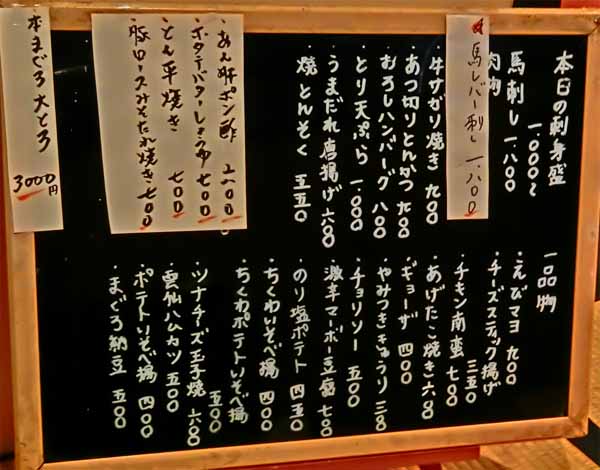 本日の刺身盛
一.〇〇〇〜
・馬刺し 一.八〇〇
肉物
馬レバー刺し 一.八〇〇
・牛サガリ焼き 九〇〇
・あつ切りとんかつ 九〇〇
・おろしハンバーグ 八〇〇
・とり天ぷら 一.〇〇〇
・うまだれ唐揚げ 六〇〇
・焼とんそく 五五〇
・あん肝ポン酢
・ホタテバターしょうゆ 七〇〇
・とん平焼き 七〇〇
・豚ロースみそたれ焼き 七〇〇
本まぐろ大とろ
3000円
一品物
・えびマヨ 九〇〇
・チーズスティック揚げ
三五〇
・チキン南蛮 七〇〇
・あげたこ焼き 六〇〇
・ギョーザ 四〇〇
・やみつききゅうり 三八〇
・チョリソー 五〇〇
・激辛マーボー豆腐 七〇〇
・のり塩ポテト 四五〇
・ちくわいそべ揚 四〇〇
・ちくわポテトいそべ揚
五〇〇
・ツナチーズ玉子焼 六〇〇
・雲仙ハムカツ 五〇〇
・ポテトいそべ揚 四〇〇
・まぐろ納豆 五〇〇